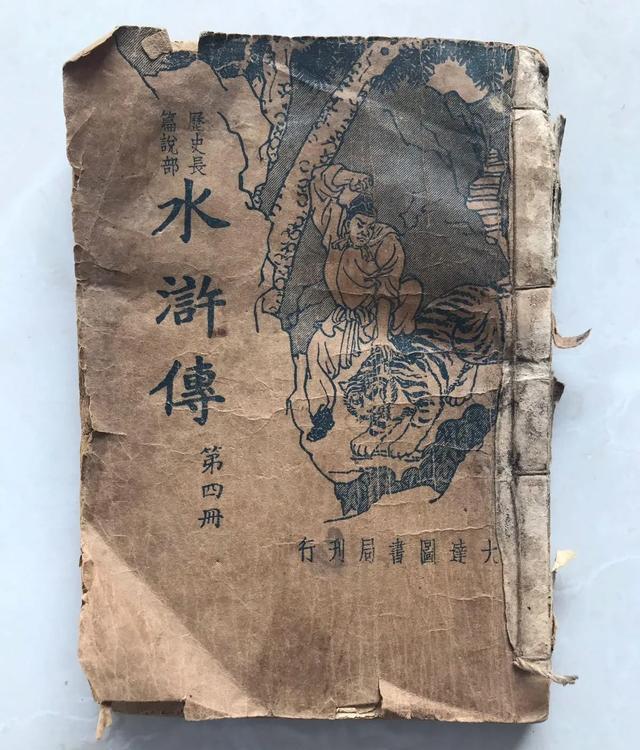 歷史長
篇說部
水滸傳
第四冊
大達圖書局刊行